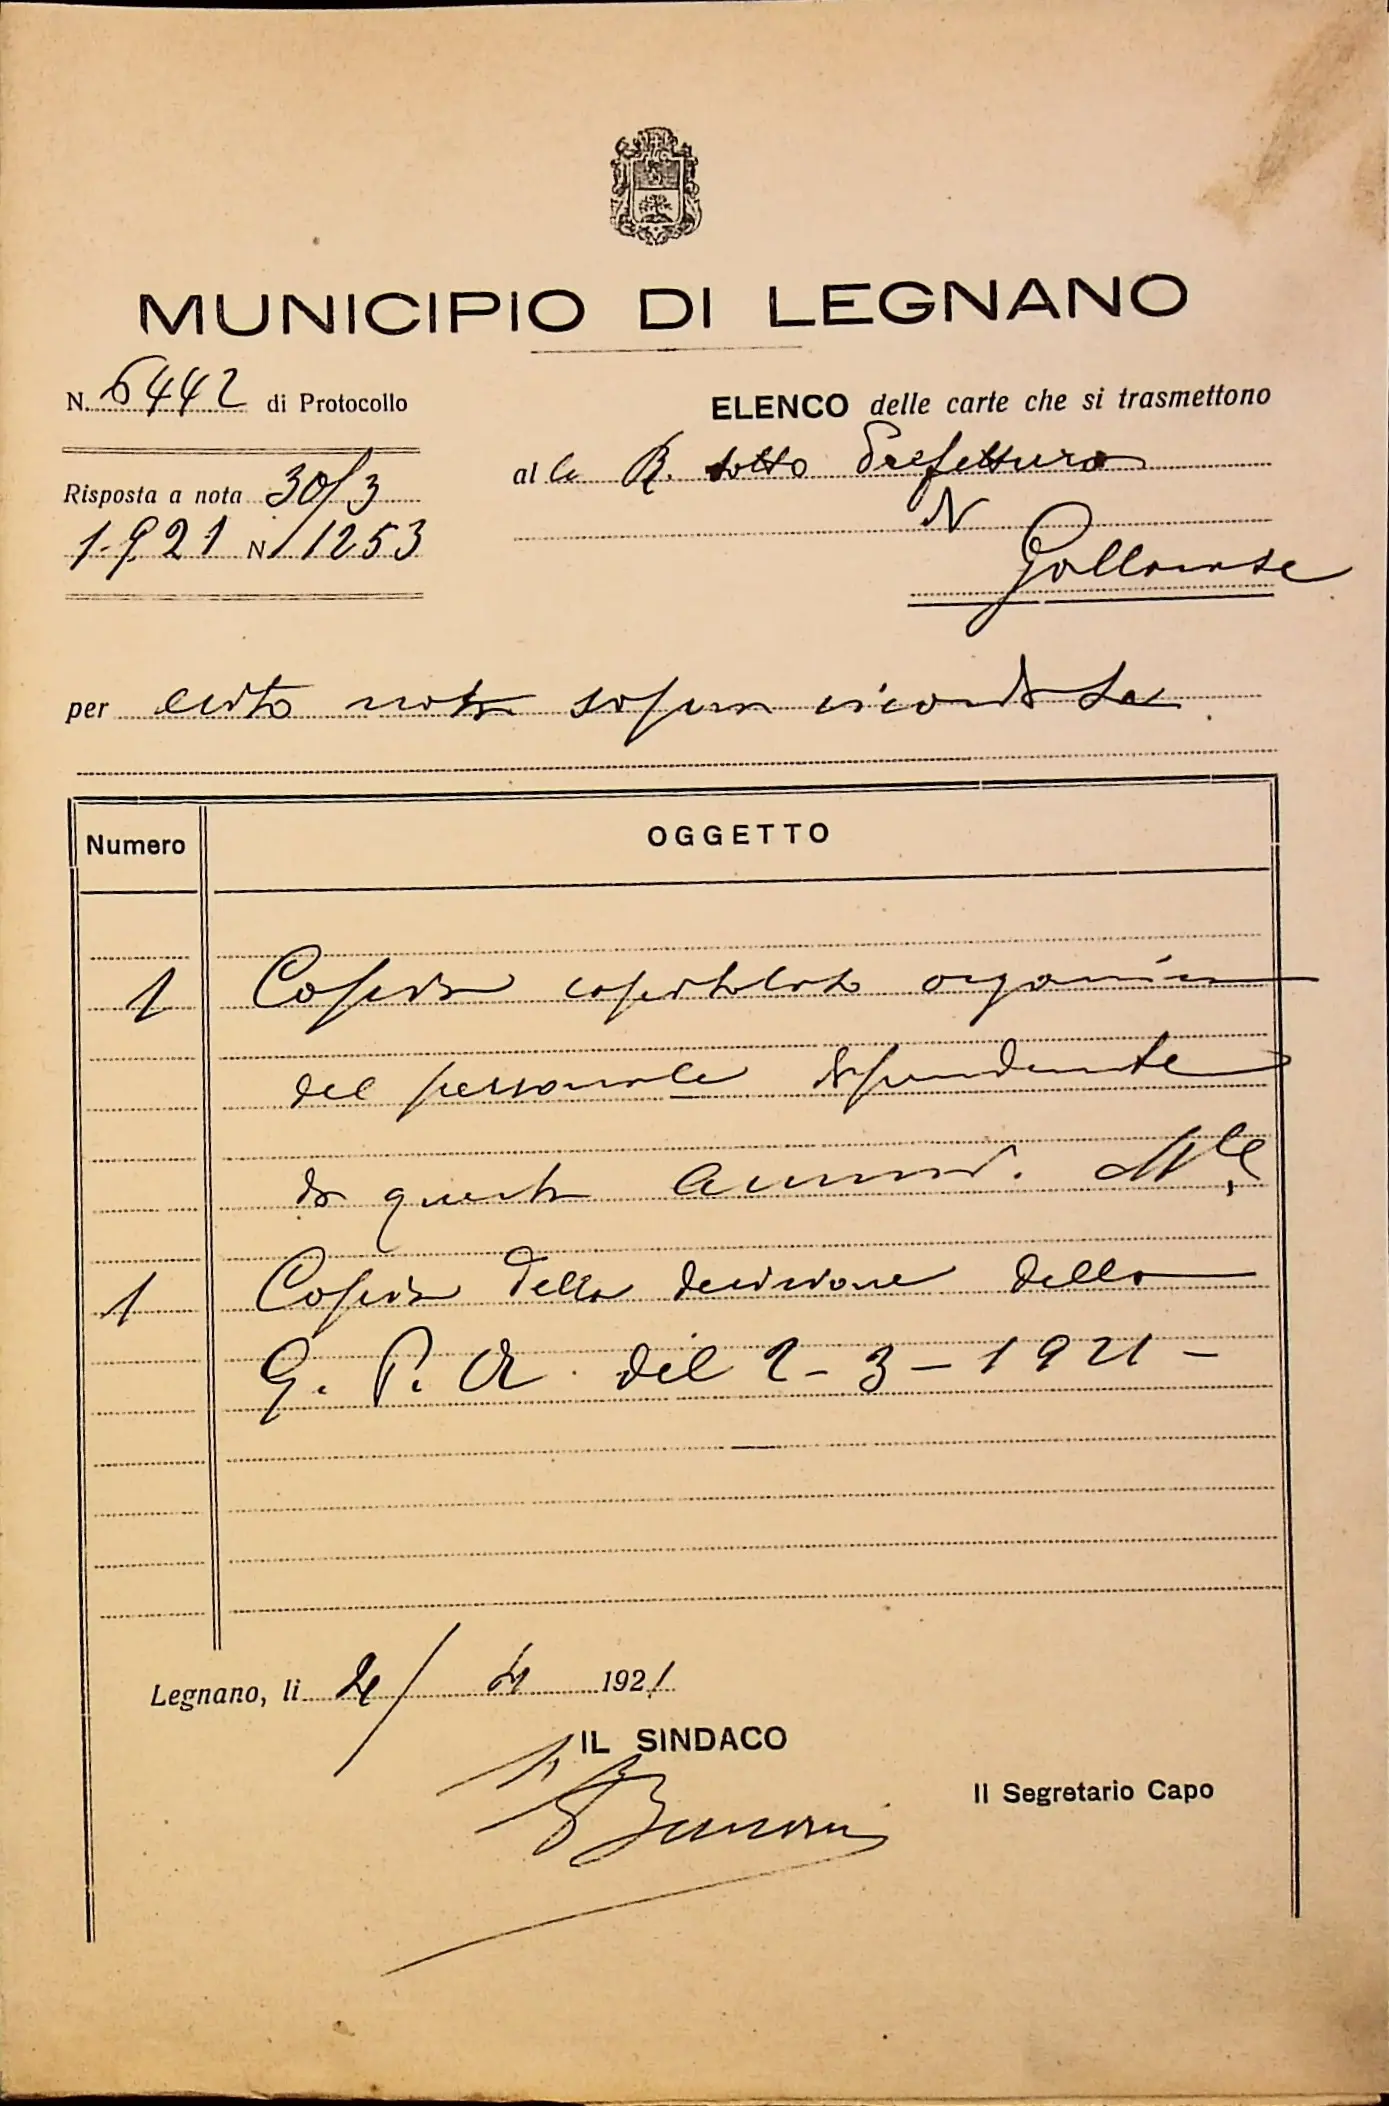 MUNICIPIO DI LEGNANO
N. 6442 di Protocollo
Risposta a nota 30/3
1921 N. 1253
ELENCO delle carte che si trasmettono
al la R. Sotto Prefettura
di
Gallarate
per citata nota sopra ricordata.
Numero OGGETTO
1 Copia capitolato organico
del personale dipendente
da questa Ammin. M.le
1 Copia della decisione della
G. P. A. del 2-3-1921-
Legnano, li 2/4 1921
IL SINDACO
Il Segretario Capo